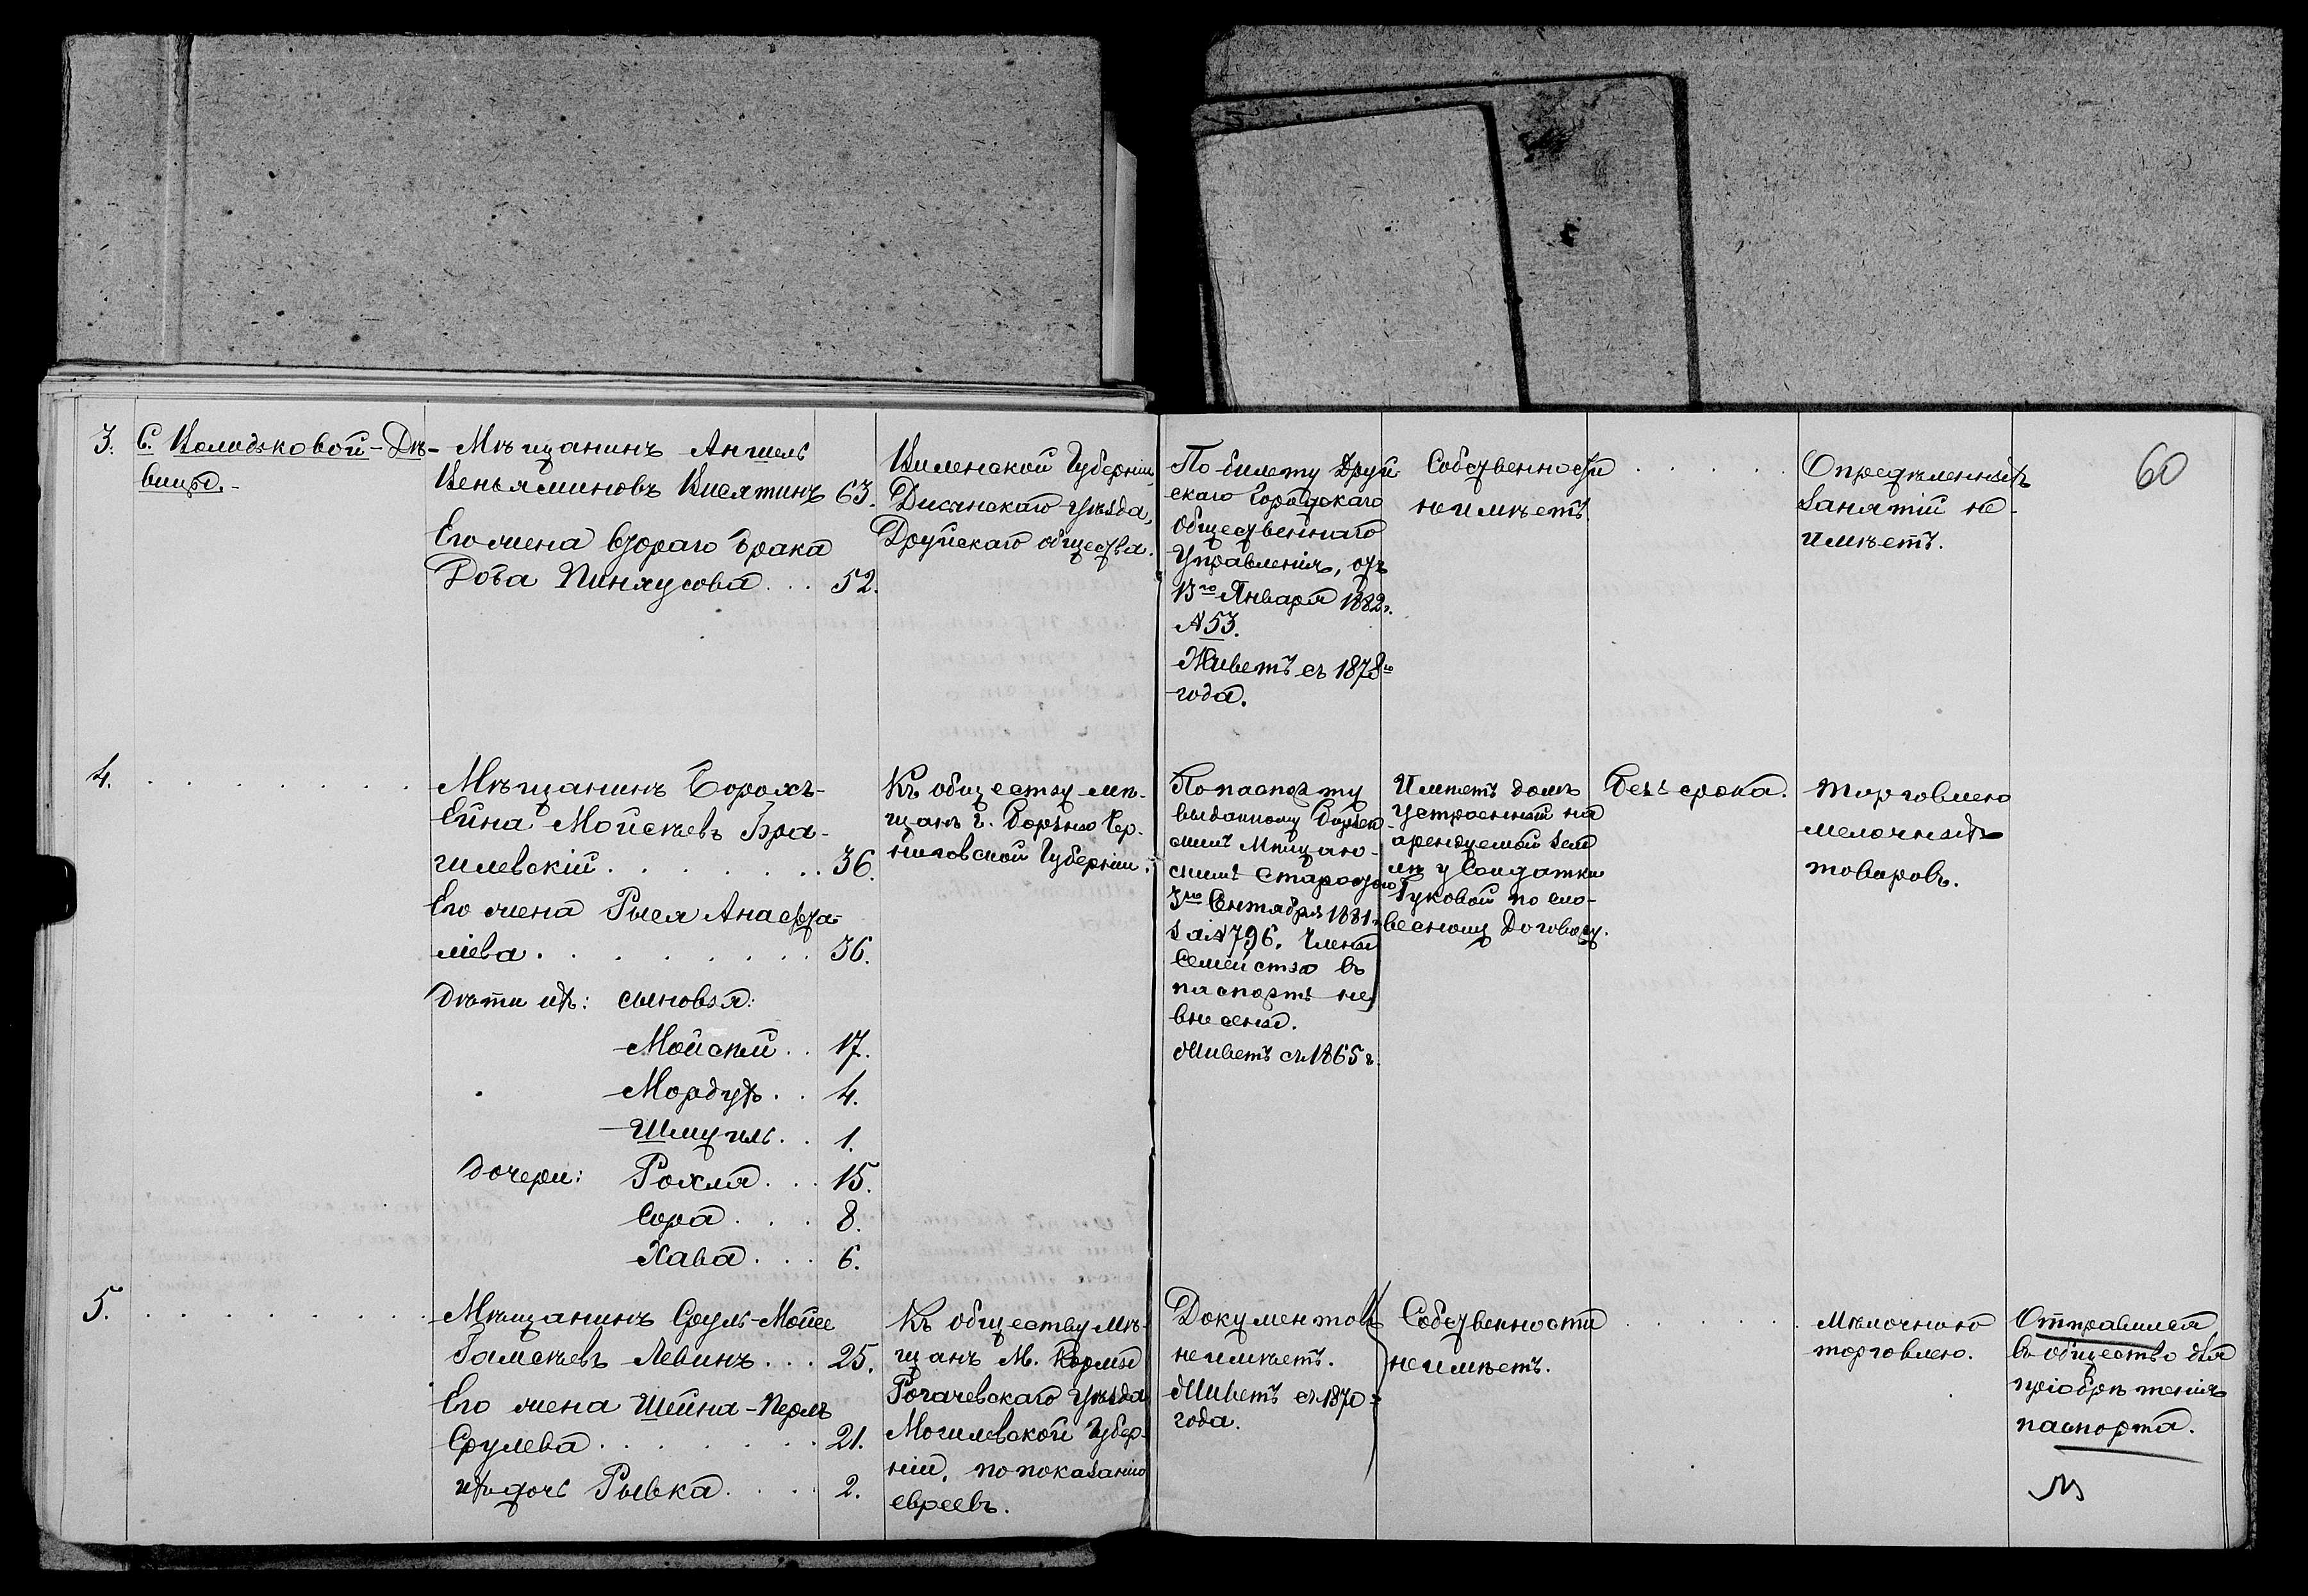 3.
С. Володьковой-Дѣ-
вицы.-
Мѣщанинъ Аншель
Веньяминовъ Висятинъ 63.
Его жена втораго брака
Доба Пинхусова . . . 52.
Виленской Губерніи
Дисненскаго уѣзда,
Друйскаго общества.
По билету Друй-
скаго Городскаго
общественнаго
Управленія, отъ
13го Января 1882г.
№ 53.
Живетъ съ 1878го
года.
Собственности
не имѣетъ.
. . . . .
Опредѣленныхъ
занятій не
имѣетъ.
60
4. . . . . . . . .
Мѣщанинъ Борохъ-
Ейна Мойсѣевъ Бра-
гилевскій . . . . . . . 36.
Его жена Рыся Анаста-
лiева . . . . . . . . . 36.
Дѣти ихъ: сыновья:
Мойсѣй . . 17.
Мордухъ . . 4.
Шмуиль . . 1.
дочери: Рохля . . . 15.
Сора . . . . 8.
Хава . . . 6.
Къ обществу мѣ-
щанъ г. Борзны Чер-
ниговской Губерніи.
По паспорту
выданному Борзен
скимъ Мѣщан-
скимъ Старостою
3го Сентября 1881г.
за № 796. Члены
Семейства въ
паспортъ не
внесены.
Живетъ съ 1865 г.
Имѣетъ домъ
устроенный на
арендуемой зем
лѣ у Солдатки
Гуковой по сло-
весному Договору.
Безъ срока.
Торговлею
мелочныхъ
товаровъ.
5. . . . . . . . . .
Мѣщанинъ Сруль-Мойсе
Гамсѣевъ Левинъ . . . 25.
Его жена Шейна-Перлъ
Срулева . . . . . . . 21.
ихъ дочь Рывка . . . . 2.
Къ обществу мѣ-
щанъ М. Кормы
Рогачевскаго уѣзда
Могилевской Губер-
ніи, по показанію
евреевъ.
Документовъ
не имѣетъ.
Живетъ съ 1870 г
года.
Собственности
не имѣетъ.
. . . . . . .
Мѣлочною
торговлею.
Отправился
въ общество для
пріобрѣтенія
паспорта.